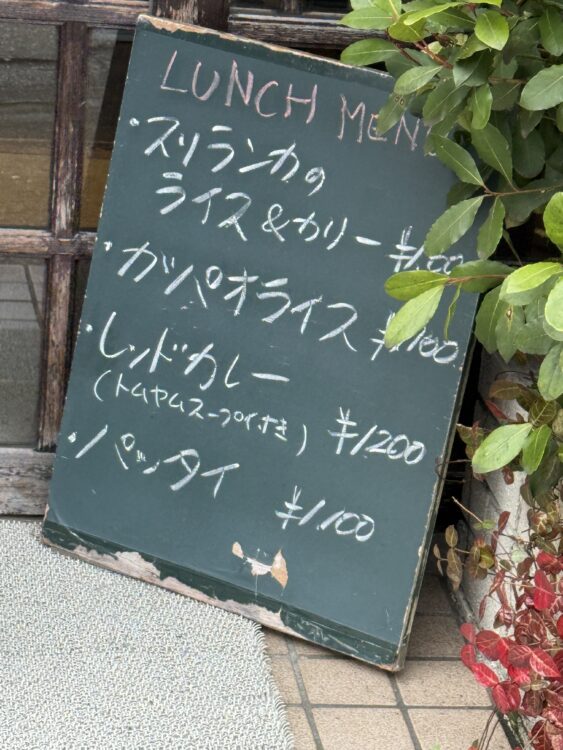 LUNCH MEN
・スリランカの
ライス&カリー
・ガッパオライス ¥1,100
・レッドカレー
(トムヤムスープ付き) ¥1,200
・パッタイ ¥1,100